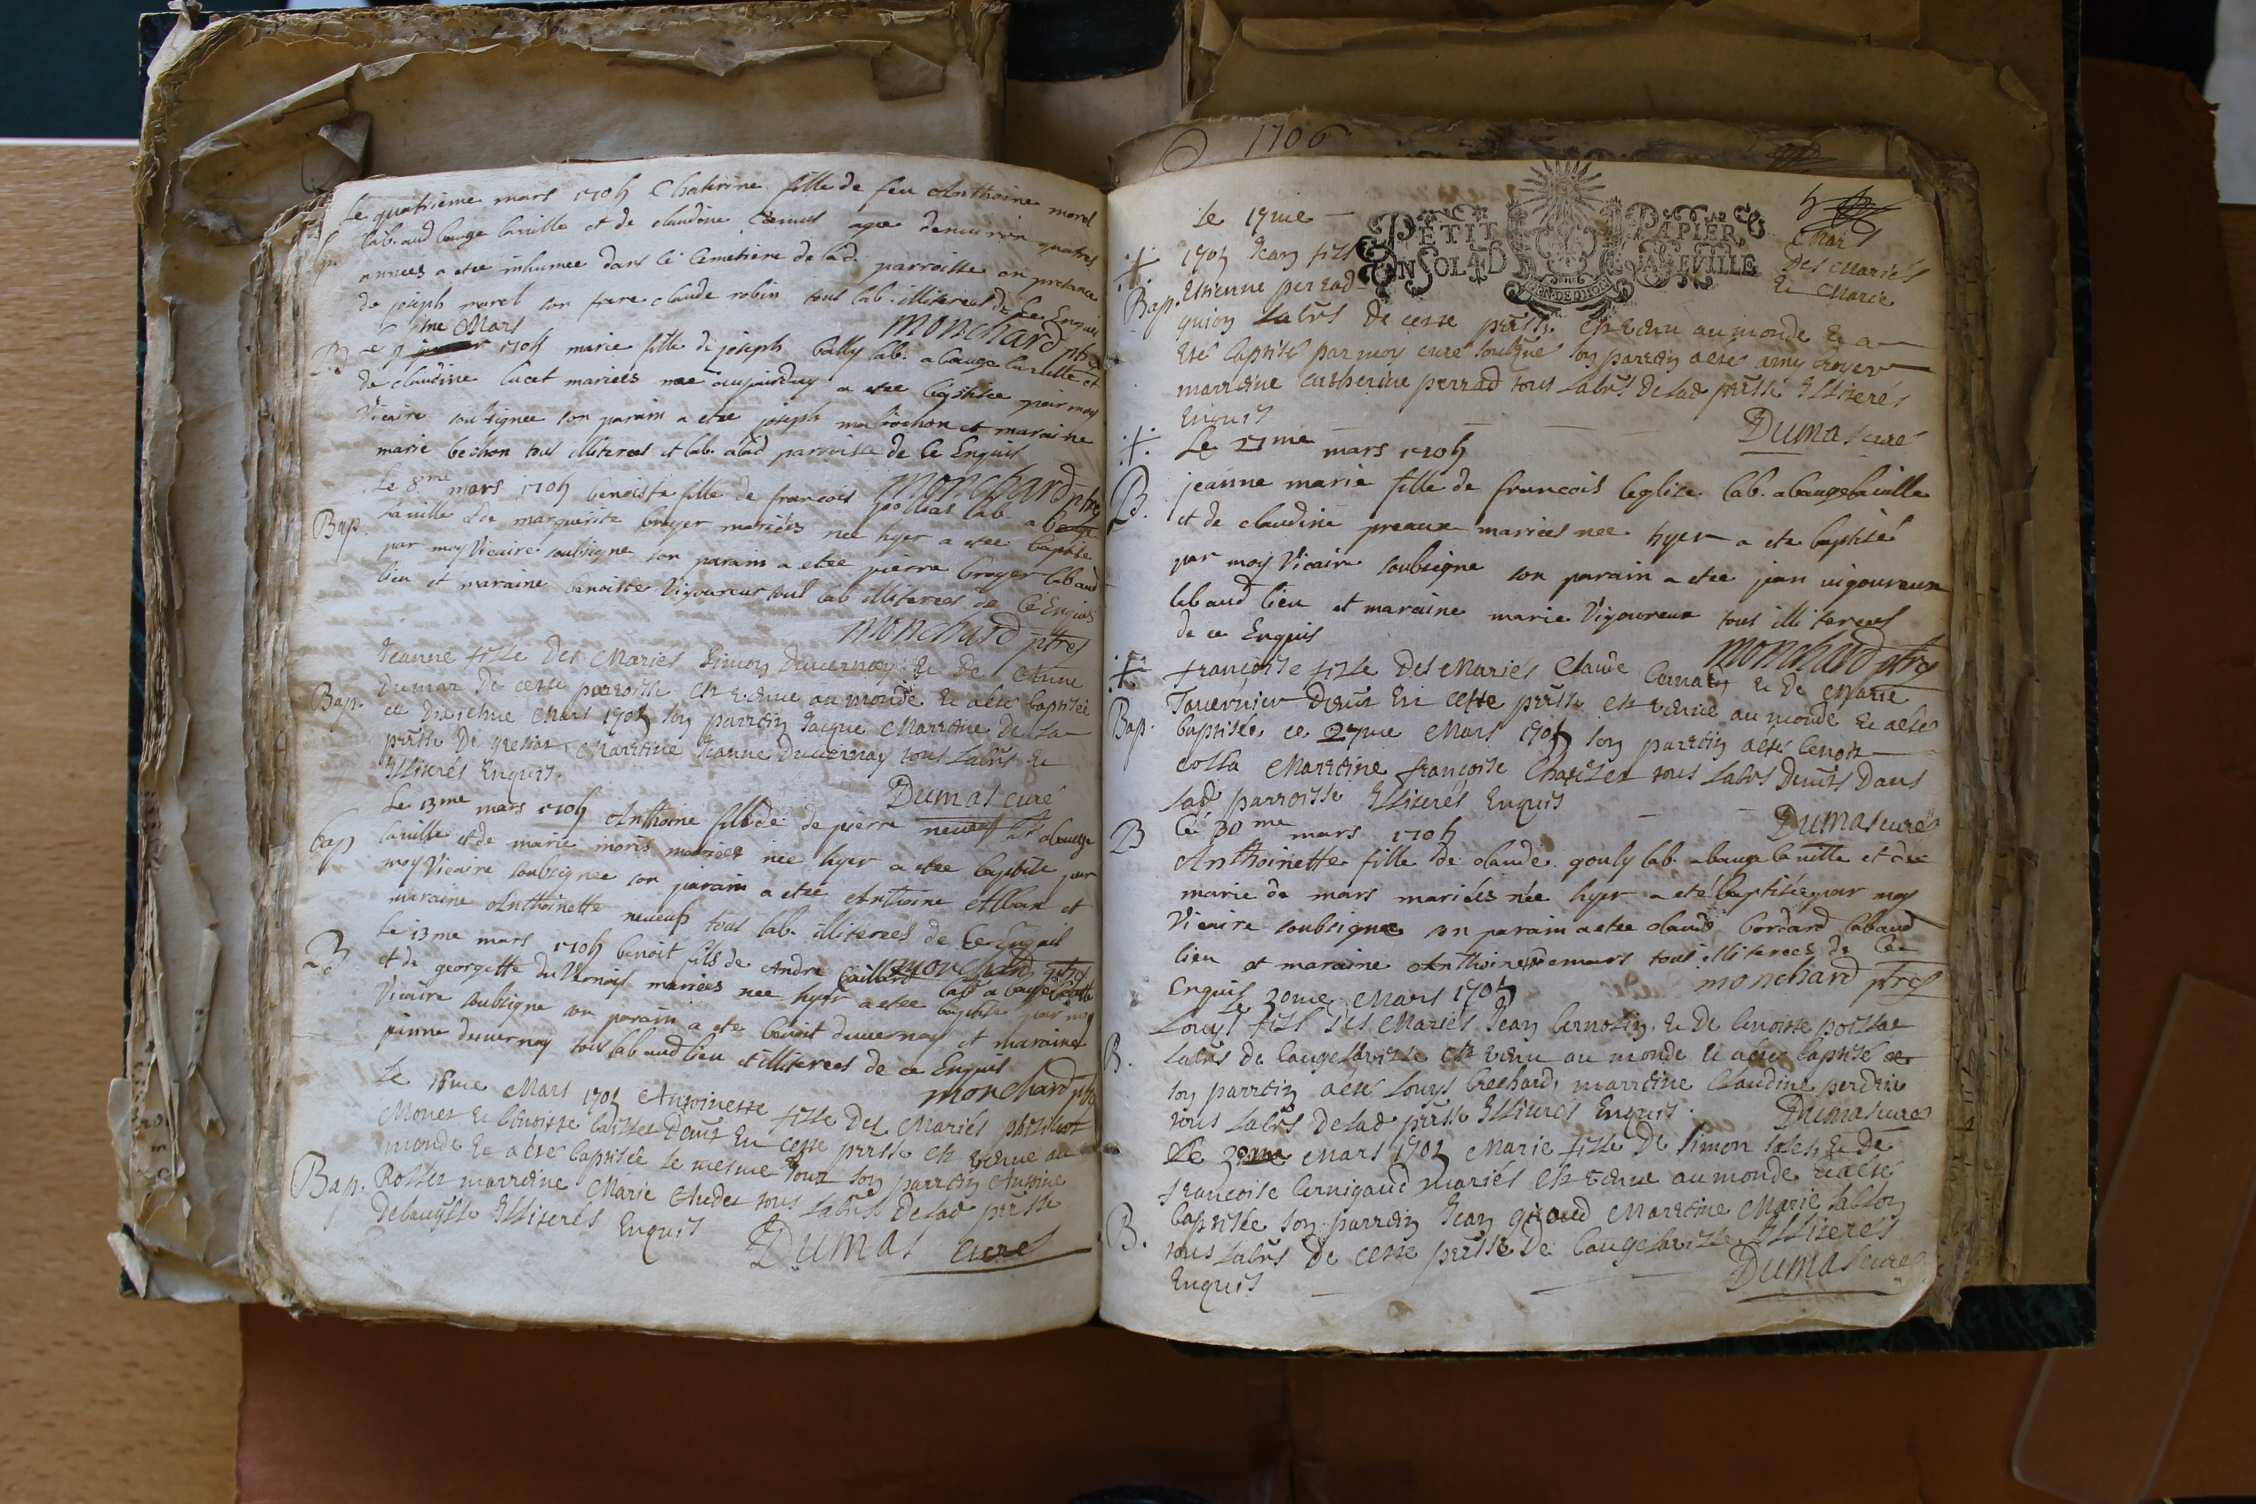 Le quatrieme mars 1705 Chaterine fille de feu Anthoine morel
lab. aud bauge laville et de claudine agee denviron quatres
annees a etee inhumee dans le cemetiere de lad. parroisse en presence
de joseph morel son frere claude robin tous lab. illiterees de ce Enquis
monchard ptre
B
Le 7me Mars 1705 marie fille de joseph bally lab. a bauge laville et
de claudine lucet mariees nee aujourduy a etee baptisee par moy
Vicaire soubsignee son parain a etee joseph et maraine
marie bechon tous illiterees et lab. alad parroisse de ce Enquis
monchard ptre
Bap.
Le 8me mars 1705 benoiste fille de francois lab. a bauge
laville & de marguerite broyer mariees nee hyer a etee baptisee
par moy Vicaire soubsigne son parain a etee pierre broyer lab aud
lieu et maraine benoiste Vigoureux tous lab illiterees de ce Enquis
monchard ptre
Bap.
Jeanne fille des Mariés Simon duvernay & de Anne
dumar de cette parroisse est venue au monde & a esté baptisée
ce Mars 1705 son parrein Jacque Marrone de la
prsse de Marreine Jeanne Duvernay tous labrs &
Illiterés Enquis.
Dumas curé
bap
Le 13me mars 1705 Anthoine fille de de pierre neveuf lab abauge
laville et de marie moris mariees nee hyer a etee baptisee par
moy Vicaire soubsignee son parain a etee Anthoine Alban et
maraine Anthoinette neveuf tous lab. illiterees de ce Enquis
monchard ptre
B
Le 13me mars 1705 benoit fils de Andre caillard lab a bauge laville
et de georgette du Vernay mariees nee hyer a etee baptisée par moy
Vicaire soubsigne son parain a ete benoit duvernay et maraine
pierrine duvernay tous lab aud lieu et illiterees de ce Enquis
monchard ptre
Le 18me Mars 1705 Antoinette fille des Mariés philibert
Monet & benoiste caillet Dmts En cette prsse est venue au
monde & a esté baptisée le mesme Jour son parrein Antoine
Bap.
Rollet marreine Marie Chudet tous labrs de lad prsse
Illiterés Enquis
Dumas curé
1706
PETIT PAPIER,
UN SOL 4 D LA FEVILLE
Le 19me
Mars
1705 Jean fils
des Mariés
Bap.
Estienne perrad
& Marie
guion labrs de cette prsse est venu au monde & a
esté baptisé par moy curé soubsgné son parrein a esté amy broyer
marreine catherine perrad tous labrs de lad prsse Illiterés
Enquis
Dumas curé
B.
Le 27me mars 1705
jeanne marie fille de francois leglize lab. abaugelaville
et de claudine preaux mariees nee hyer a ete baptisé
par moy Vicaire soubsigne son parain a etee jean vigoureux
lab aud lieu et maraine marie Vigoureux tous illiterees
de ce Enquis
monchard ptre
Bap.
francoise fille des Mariés Claude & de Marie
Tavernier Dmts En cette prsse est venue au monde & a esté
baptisée ce 29me Mars 1705 son parrein a esté benoit
colla Marreine francoise Chatelet tous labrs Dmts Dans
lad parroisse Illiterés Enquis
Dumas curé
B
Le 30me mars 1705
Anthoinette fille de claude gouly lab. abauge laville et de
marie de mars mariées née hyer a eté baptisée par moy
Vicaire soubsignee son parain a etee claude bordard lab aud
lieu et maraine Anthoinette demars tous illiterees de Ce
Enquis
monchard ptre
Le 30me Mars 1705
B.
Louys fils des Mariés Jean bernolin & de benoiste poisat
labrs de baugelaville est venu au monde & a esté baptisé
son parrein a esté Louys brechard, marreine Claudine perdrix
tous labrs de lad prsse Illiterés Enquis.
Dumas curé
Le 30me Mars 1705 Marie fille de Simon & de
francoise bernigaud mariés est venue au monde & a esté
B.
baptisée son parrein Jean giroud Marreine Marie sablon
tous labrs de cette prsse de baugelaville Illiterés
Enquis
Dumas curé